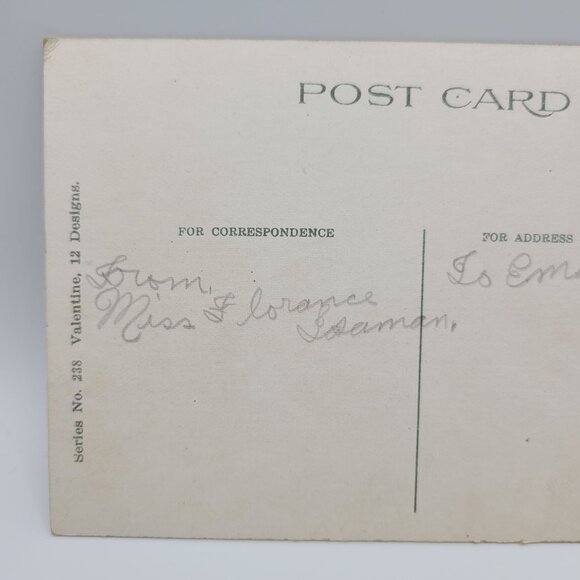 POST CARD
Series No. 238 Valentine, 12 Designs.
FOR CORRESPONDENCE
FOR ADDRESS
From,
Miss Florance
To